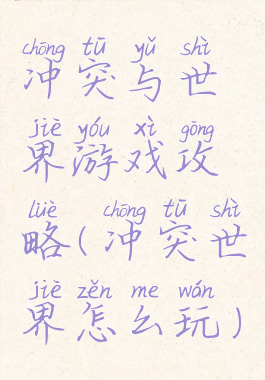 chōng tū yǔ shì
冲突与世
jiè yóu xì gōng
界游戏攻
lüè chōng tū shì
略(冲突世
jiè zěn me wán
界怎么玩)